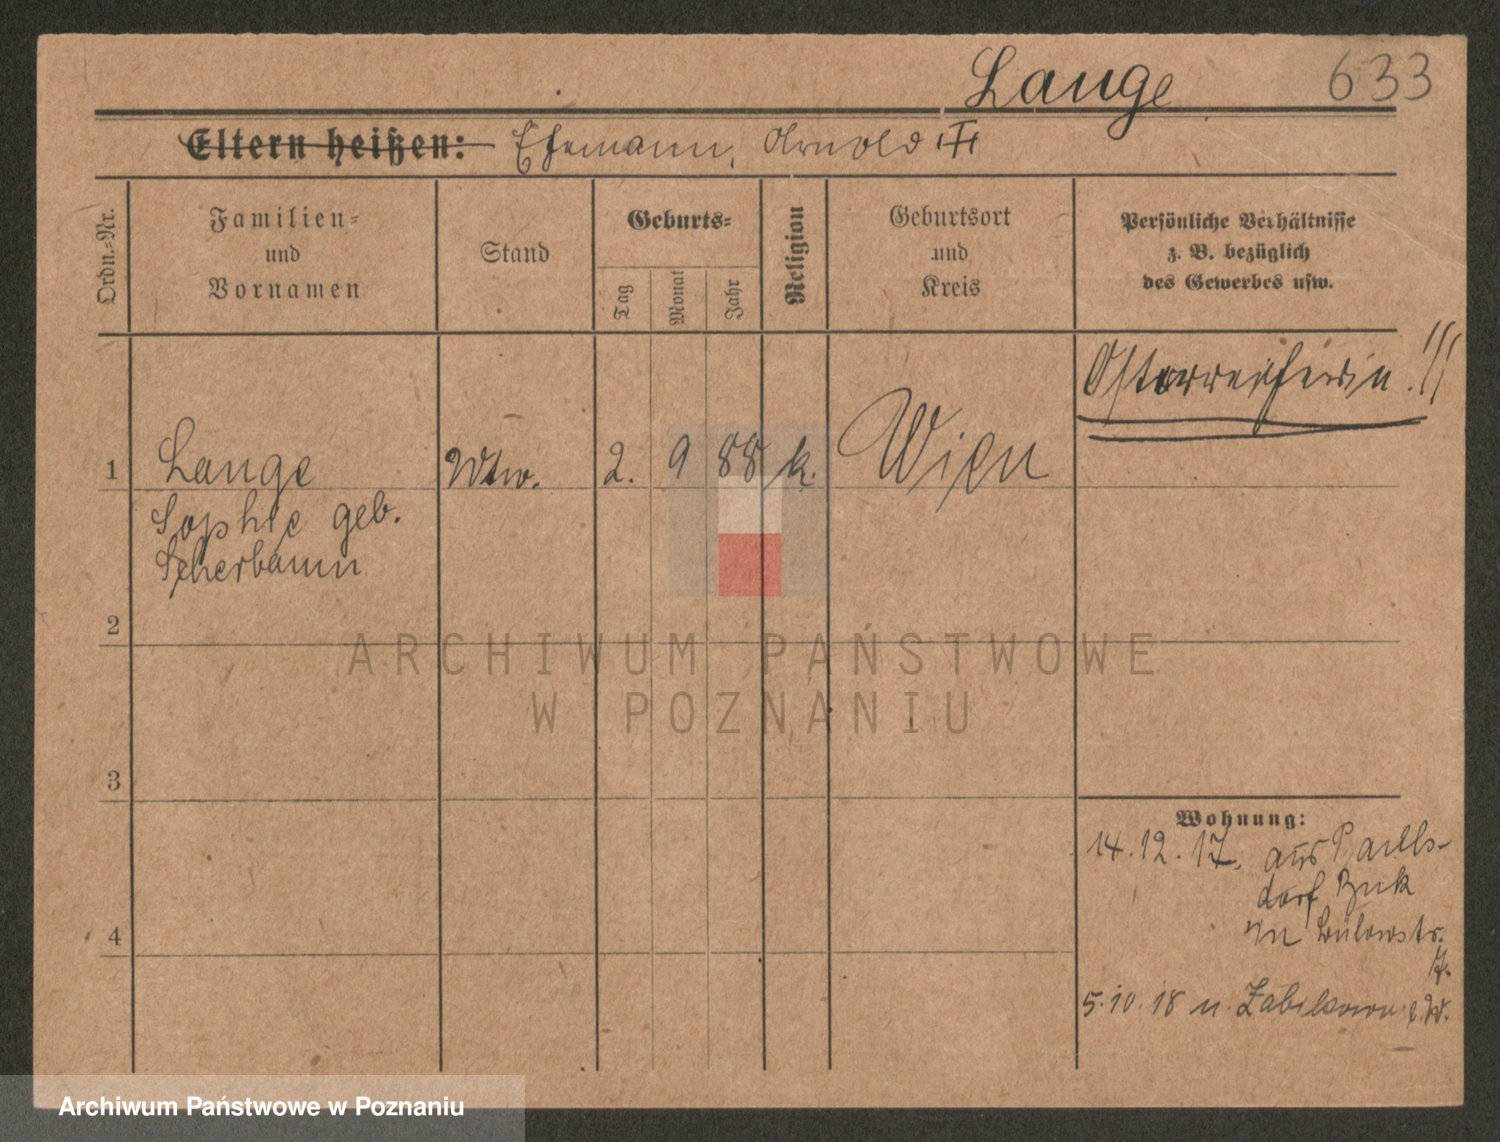 Lange 633
Eltern heißen: Ehemann, Arnold
Ordn.-Nr.
Familien-
und
Vornamen
Stand
Geburts-
Tag
Monat
Jahr
Religion
Geburtsort
und
Kreis
Persönliche Verhältnisse
z. B. bezüglich
des Gewerbes usw.
Österreicherin!!!
1 Lange Wtw. 2. 9 88 k. Wien
Sophie geb.
Scherbaum
2
ARCHIWUM PAŃSTWOWE
W POZNANIU
3
Wohnung:
14.12.17. aus Pauls-
dorf Buk
in Bülowstr.
4
5.10.18 n. Zabikowo
Archiwum Państwowe w Poznaniu